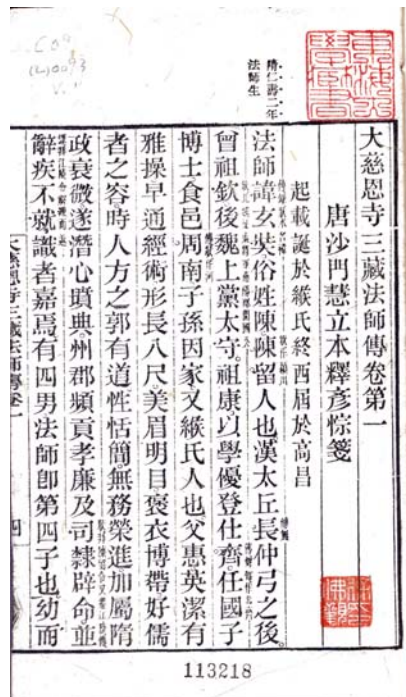 大慈恩寺三藏法師傳卷第一
唐沙門慧立本釋彥悰箋
起載誕於緱氏終西屆於高昌
隋仁壽二年
法師生
法師諱玄奘俗姓陳陳留人也漢太丘長仲弓之後
曾祖欽後魏上黨太守祖康以學優登仕齊任國子
博士食邑周南子孫因家又緱氏人也父惠英潔有
雅操早通經術形長八尺美眉明目褒衣博帶好儒
者之容時人方之郭有道性恬簡無務榮進加屬隋
政衰微遂潛心墳典州郡頻貢孝廉及司隸辟命並
辭疾不就識者嘉焉有四男法師即第四子也幼而
大慈恩寺三藏法師傳卷一
113218